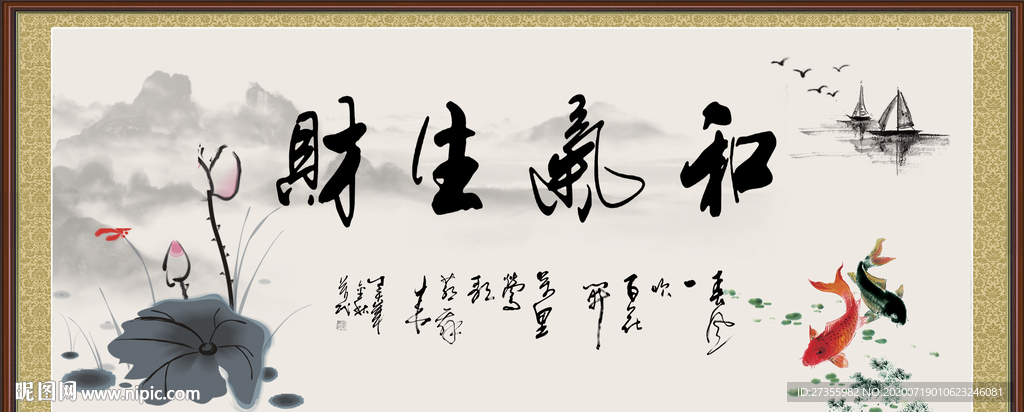 和氣生財
春風
一
吹
百花
開
萬里
鶯
歌
燕舞
春
昵图网 www.nipic.com
ID:27355982 NO.20200719010623246081